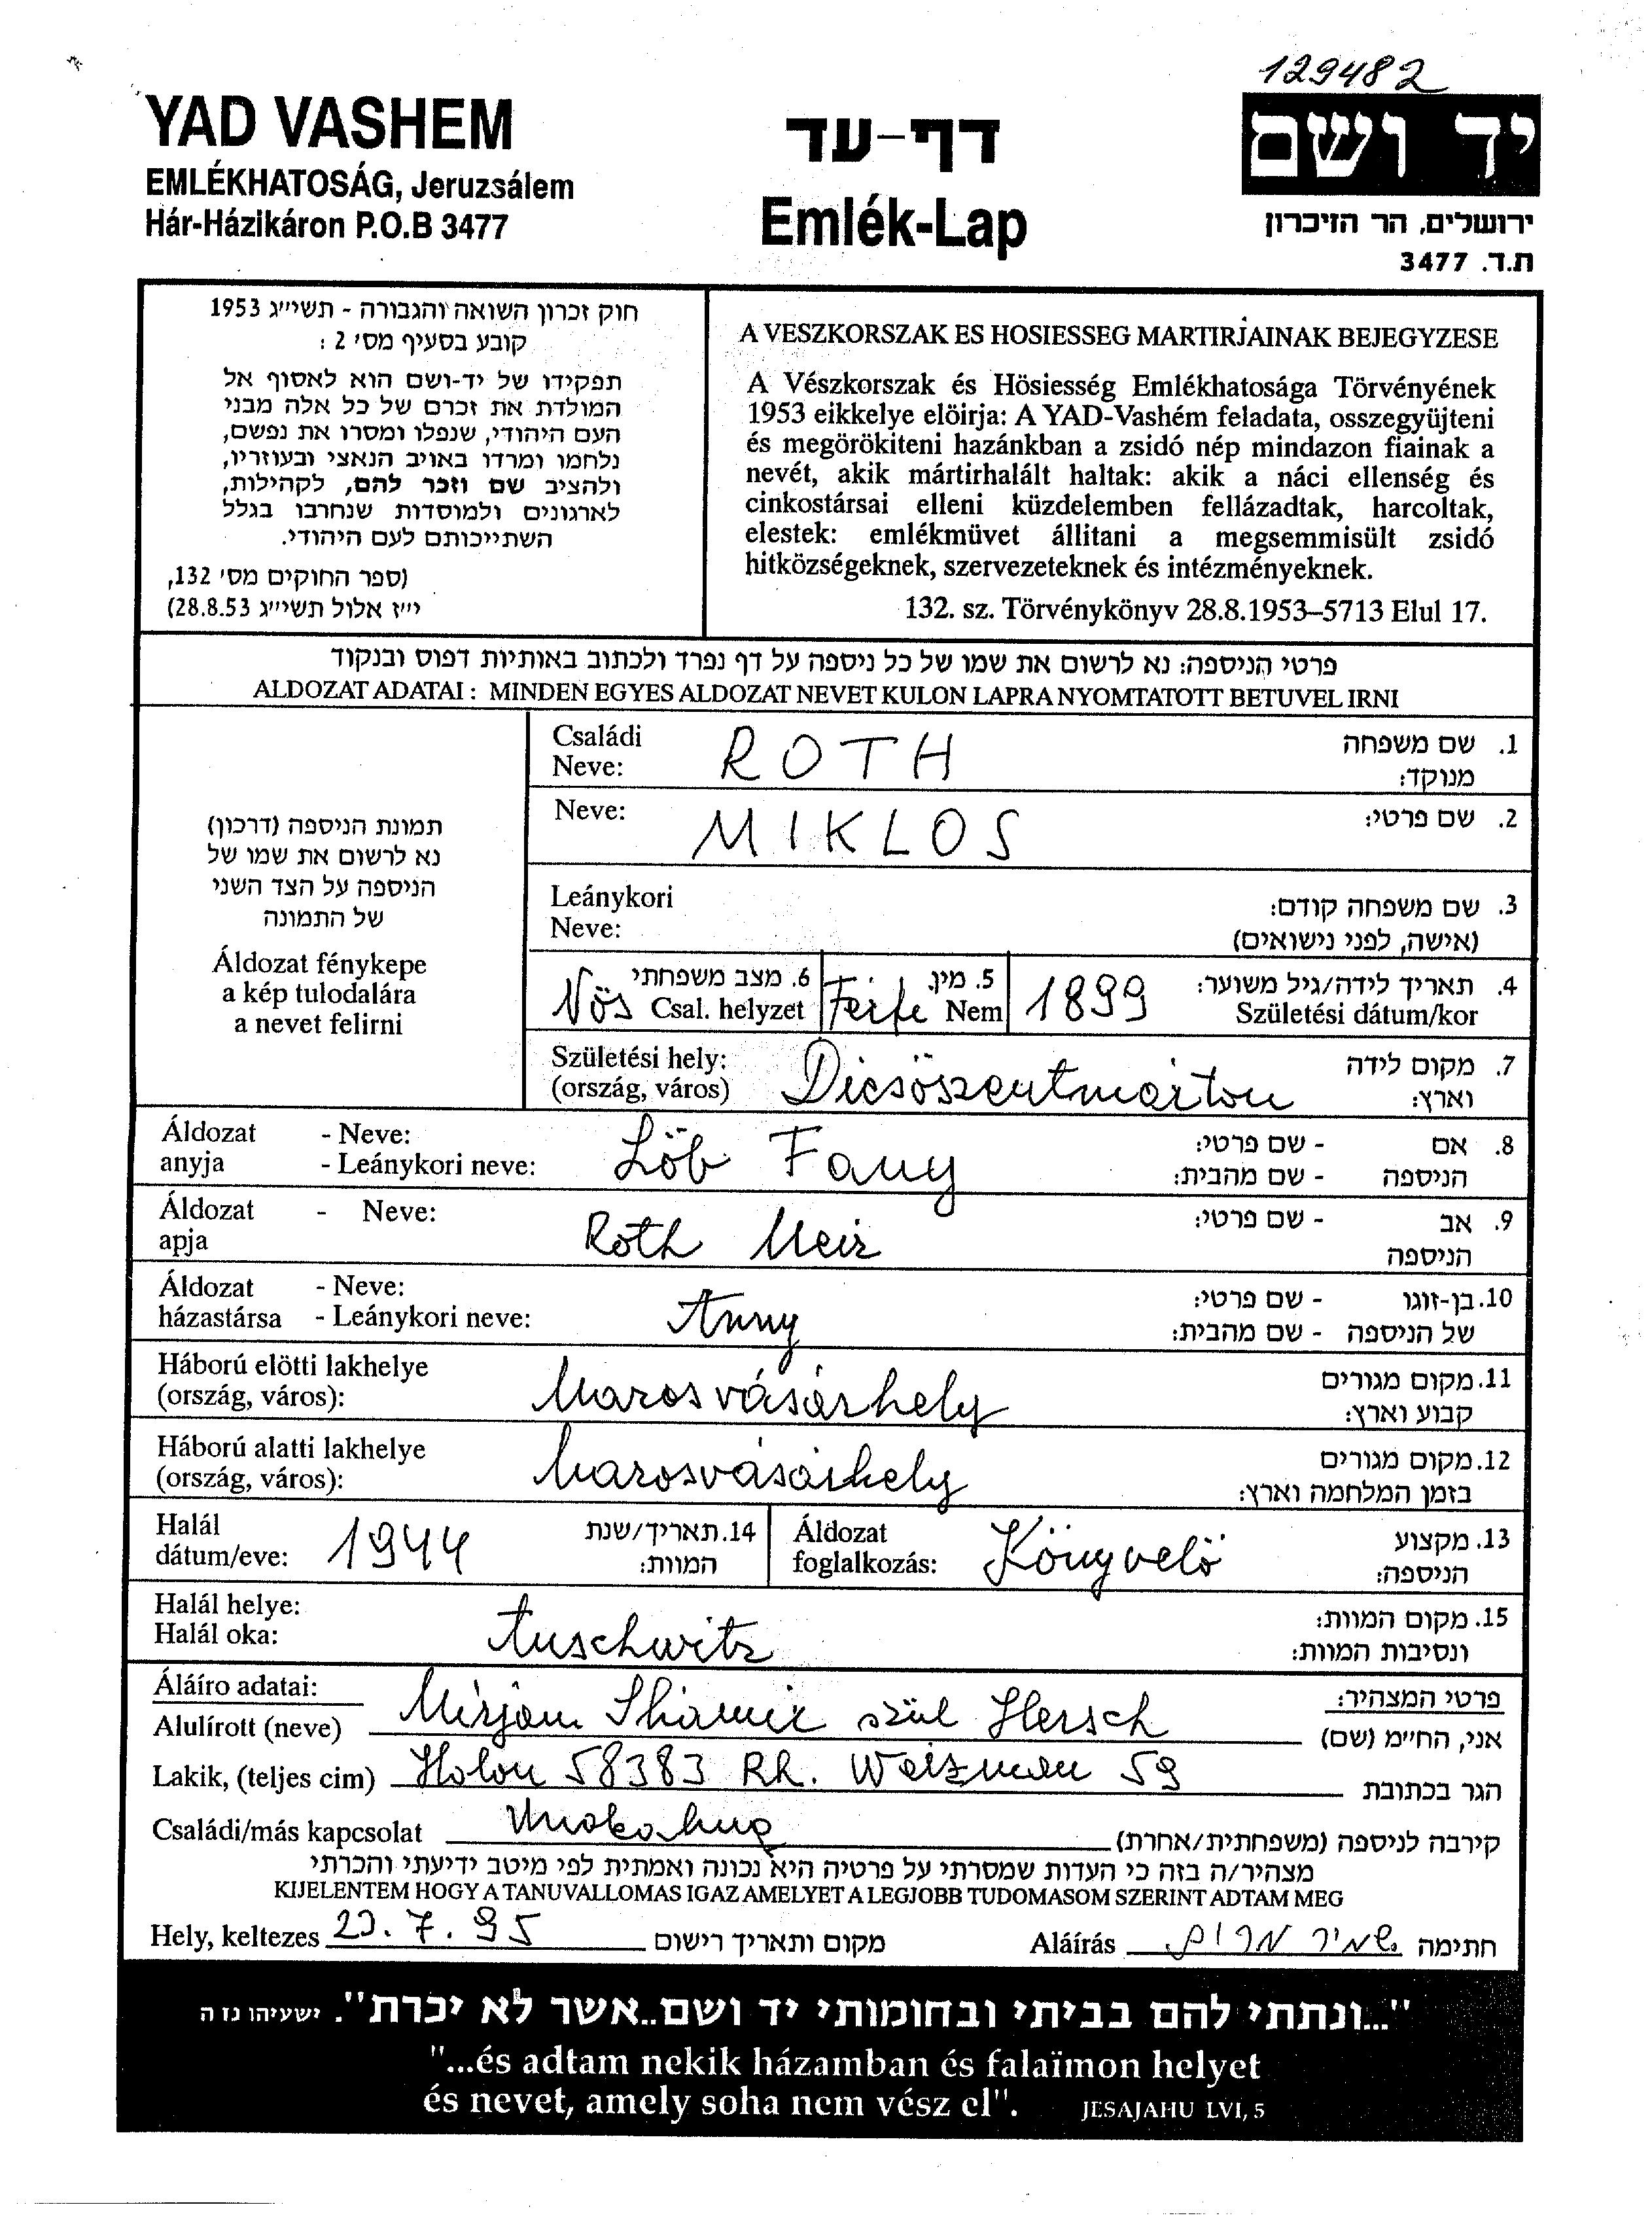 129482
YAD VASHEM
EMLÉKHATOSÁG, Jeruzsálem
Hár-Házikáron P.O.B 3477
דף-עד
Emlék-Lap
יד ושם
ירושלים, הר הזיכרון
ת.ד. 3477
חוק זכרון השואה והגבורה - תשי״ג 1953
קובע בסעיף מס׳ 2 :
תפקידו של יד-ושם הוא לאסוף אל
המולדת את זכרם של כל אלה מבני
העם היהודי, שנפלו ומסרו את נפשם,
נלחמו ומרדו באויב הנאצי ובעוזריו,
ולהציב שם וזכר להם, לקהילות,
לארגונים ולמוסדות שנחרבו בגלל
השתייכותם לעם היהודי.
(ספר החוקים מס׳ 132,
י״ז אלול תשי״ג 28.8.53)
A VESZKORSZAK ES HOSIESSEG MARTIRJAINAK BEJEGYZESE
A Vészkorszak és Hösiesség Emlékhatosága Törvényének
1953 eikkelye elöirja: A YAD-Vashém feladata, osszegyüjteni
és megörökiteni hazánkban a zsidó nép mindazon fiainak a
nevét, akik mártirhalált haltak: akik a náci ellenség és
cinkostársai elleni küzdelemben fellázadtak, harcoltak,
elestek: emlékmüvet állitani a megsemmisült zsidó
hitközségeknek, szervezeteknek és intézményeknek.
132. sz. Törvénykönyv 28.8.1953–5713 Elul 17.
פרטי הניספה: נא לרשום את שמו של כל ניספה על דף נפרד ולכתוב באותיות דפוס ובנקוד
ALDOZAT ADATAI : MINDEN EGYES ALDOZAT NEVET KULON LAPRA NYOMTATOTT BETUVEL IRNI
תמונת הניספה (דרכון)
נא לרשום את שמו של
הניספה על הצד השני
של התמונה
Áldozat fénykepe
a kép tulodalára
a nevet felirni
Családi
Neve: ROTH 1. שם משפחה
מנוקד:
Neve: MIKLOS 2. שם פרטי:
Leánykori
Neve:
3. שם משפחה קודם:
(אישה, לפני נישואים)
Nös 6. מצב משפחתי
Csal. helyzet
Ferfe 5. מין.
Nem
1899 4. תאריך לידה/גיל משוער:
Születési dátum/kor
Születési hely:
(ország, város) Dicsöszentmárton 7. מקום לידה
וארץ:
Áldozat - Neve:
anyja - Leánykori neve: Löb Fany
8. אם - שם פרטי:
הניספה - שם מהבית:
Áldozat - Neve:
apja Roth Meir
9. אב - שם פרטי:
הניספה
Áldozat - Neve:
házastársa - Leánykori neve: Anny
10. בן-זוגו - שם פרטי:
של הניספה - שם מהבית:
Háború elötti lakhelye
(ország, város): Marosvásárhely
11. מקום מגורים
קבוע וארץ:
Háború alatti lakhelye
(ország, város): Marosvásárhely
12. מקום מגורים
בזמן המלחמה וארץ:
Halál
dátum/eve: 1944
14. תאריך/שנת
המוות:
Áldozat
foglalkozás: Könyvelö
13. מקצוע
הניספה:
Halál helye:
Halál oka: Auschwitz
15. מקום המוות:
ונסיבות המוות:
Áláíro adatai:
פרטי המצהיר:
Alulírott (neve) Mirjam Shamir szül Hersch אני, החי״מ (שם)
Lakik, (teljes cim) Holon 58383 Rh. Weizman 59 הגר בכתובת
Családi/más kapcsolat Unokahug קירבה לניספה (משפחתית/אחרת)
מצהיר/ה בזה כי העדות שמסרתי על פרטיה היא נכונה ואמתית לפי מיטב ידיעתי והכרתי
KIJELENTEM HOGY A TANUVALLOMAS IGAZ AMELYET A LEGJOBB TUDOMASOM SZERINT ADTAM MEG
Hely, keltezes 23.7.95 מקום ותאריך רישום
Aláírás שמיר מרים חתימה
"...ונתתי להם בביתי ובחומותי יד ושם..אשר לא יכרת". ישעיהו נו ה
"...és adtam nekik házamban és falaïmon helyet
és nevet, amely soha nem vész el". JESAJAHU LVI, 5